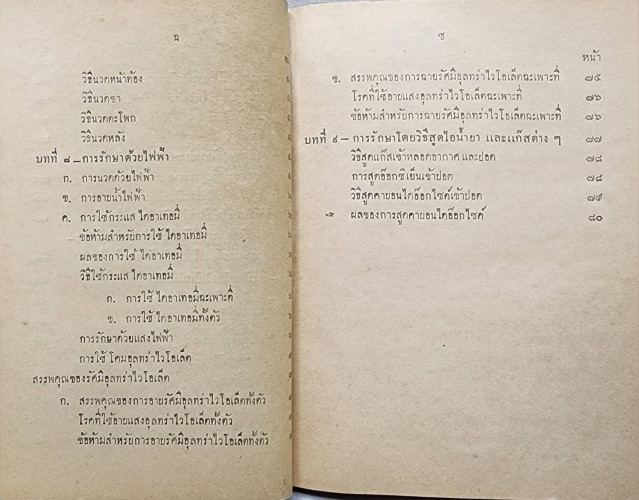 ฉ
วิธีนวดหน้าท้อง
วิธีนวดขา
วิธีนวดตะโพก
วิธีนวดหลัง
บทที่ ๘ — การรักษาด้วยไฟฟ้า
ก. การนวดด้วยไฟฟ้า
ข. การอาบน้ำไฟฟ้า
ค. การใช้กระแส ไดอาเทอมี่
ข้อห้ามสำหรับการใช้ ไดอาเทอมี่
ผลของการใช้ ไดอาเทอมี่
วิธีใช้กระแส ไดอาเทอมี่
ก. การใช้ ไดอาเทอมี่ฉะเพาะที่
ข. การใช้ ไดอาเทอมี่ทั้งตัว
การรักษาด้วยแสงไฟฟ้า
การใช้ โคมอุลทร่าไวโอเล็ต
สรรพคุณของรัศมีอุลทร่าไวโอเล็ต
ก. สรรพคุณของการอายรัศมีอุลทร่าไวโอเล็ตทั้งตัว
โรคที่ใช้อายแสงอุลทร่าไวโอเล็ตทั้งตัว
ข้อห้ามสำหรับการอายรัศมีอุลทร่าไวโอเล็ตทั้งตัว
ช
หน้า
ข. สรรพคุณของการฉายรัศมีอุลทร่าไวโอเล็ตฉะเพาะที่ ๗๕
โรคที่ใช้อายแสงอุลทร่าไวโอเล็ตฉะเพาะที่ ๗๖
ข้อห้ามสำหรับการฉายรัศมีอุลทร่าไวโอเล็ตฉะเพาะที่ ๗๖
บทที่ ๙ — การรักษาโดยวิธีสูดไอน้ำยา และแก๊สต่าง ๆ ๗๗
วิธีสูดแก๊สเข้าหลอดอากาศและปอด ๗๘
การสูดอ๊อกซิเย็นเข้าปอด ๗๘
วิธีสูดคาบอนไดอ๊อกไซด์เข้าปอด ๗๙
ผลของการสูดคาบอนไดอ๊อกไซด์ ๘๐